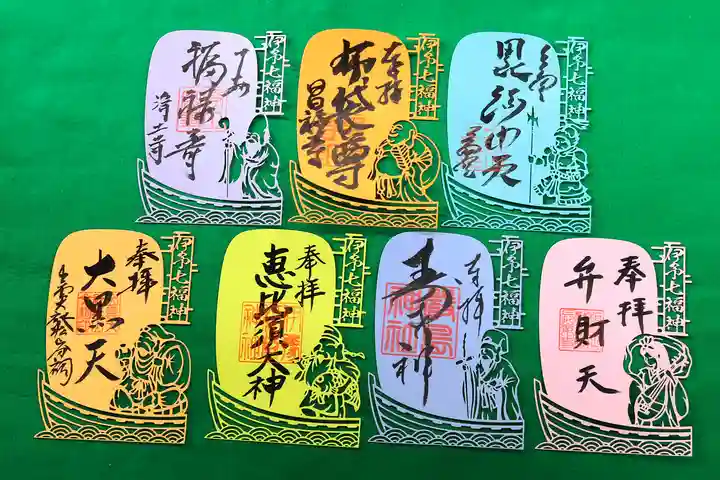 伊予七福神
福禄寿
浄土寺
伊予七福神
奉拝
布袋尊
昌福寺
伊予七福神
毘沙門天
伊予七福神
奉拝
大黒天
伊予七福神
奉拝
恵比須大神
伊予七福神
奉拝
寿老神
厳島神社
伊予七福神
奉拝
弁財天